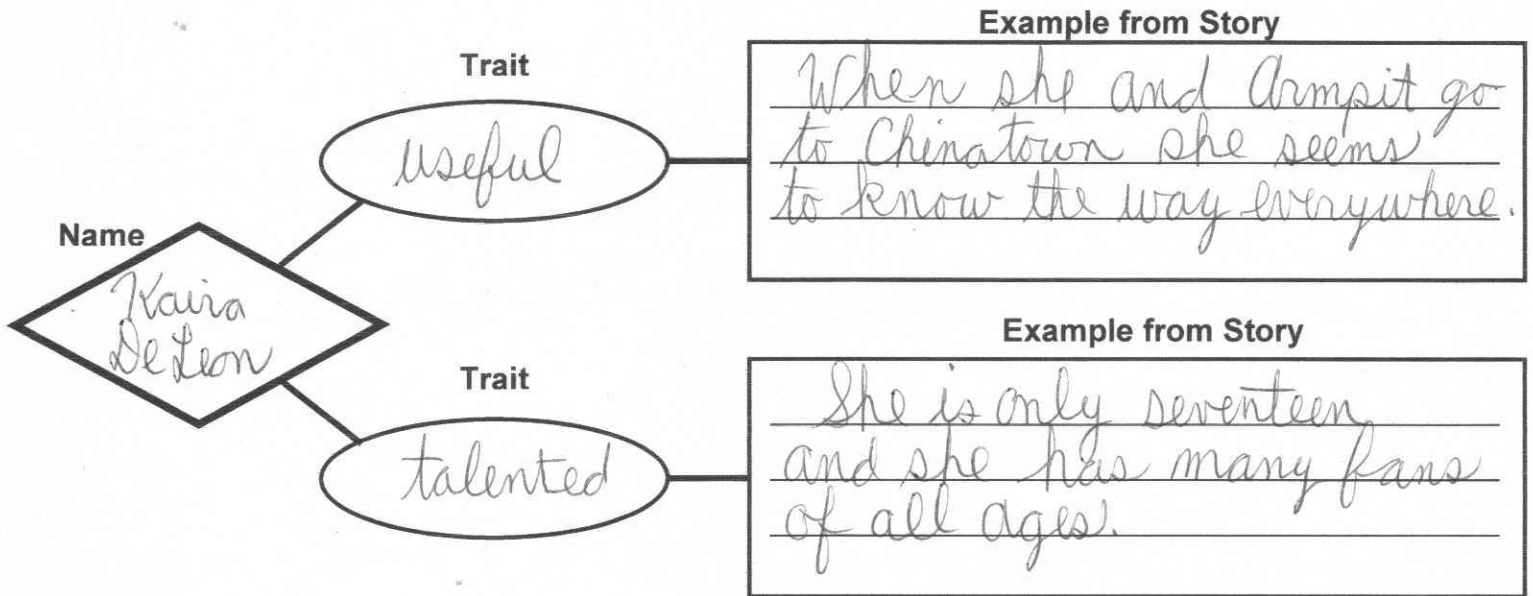 Name
Kaira
DeLeon
Trait
useful
Example from Story
When she and Armpit go
to Chinatown she seems
to know the way everywhere.
Trait
talented
Example from Story
She is only seventeen
and she has many fans
of all ages.